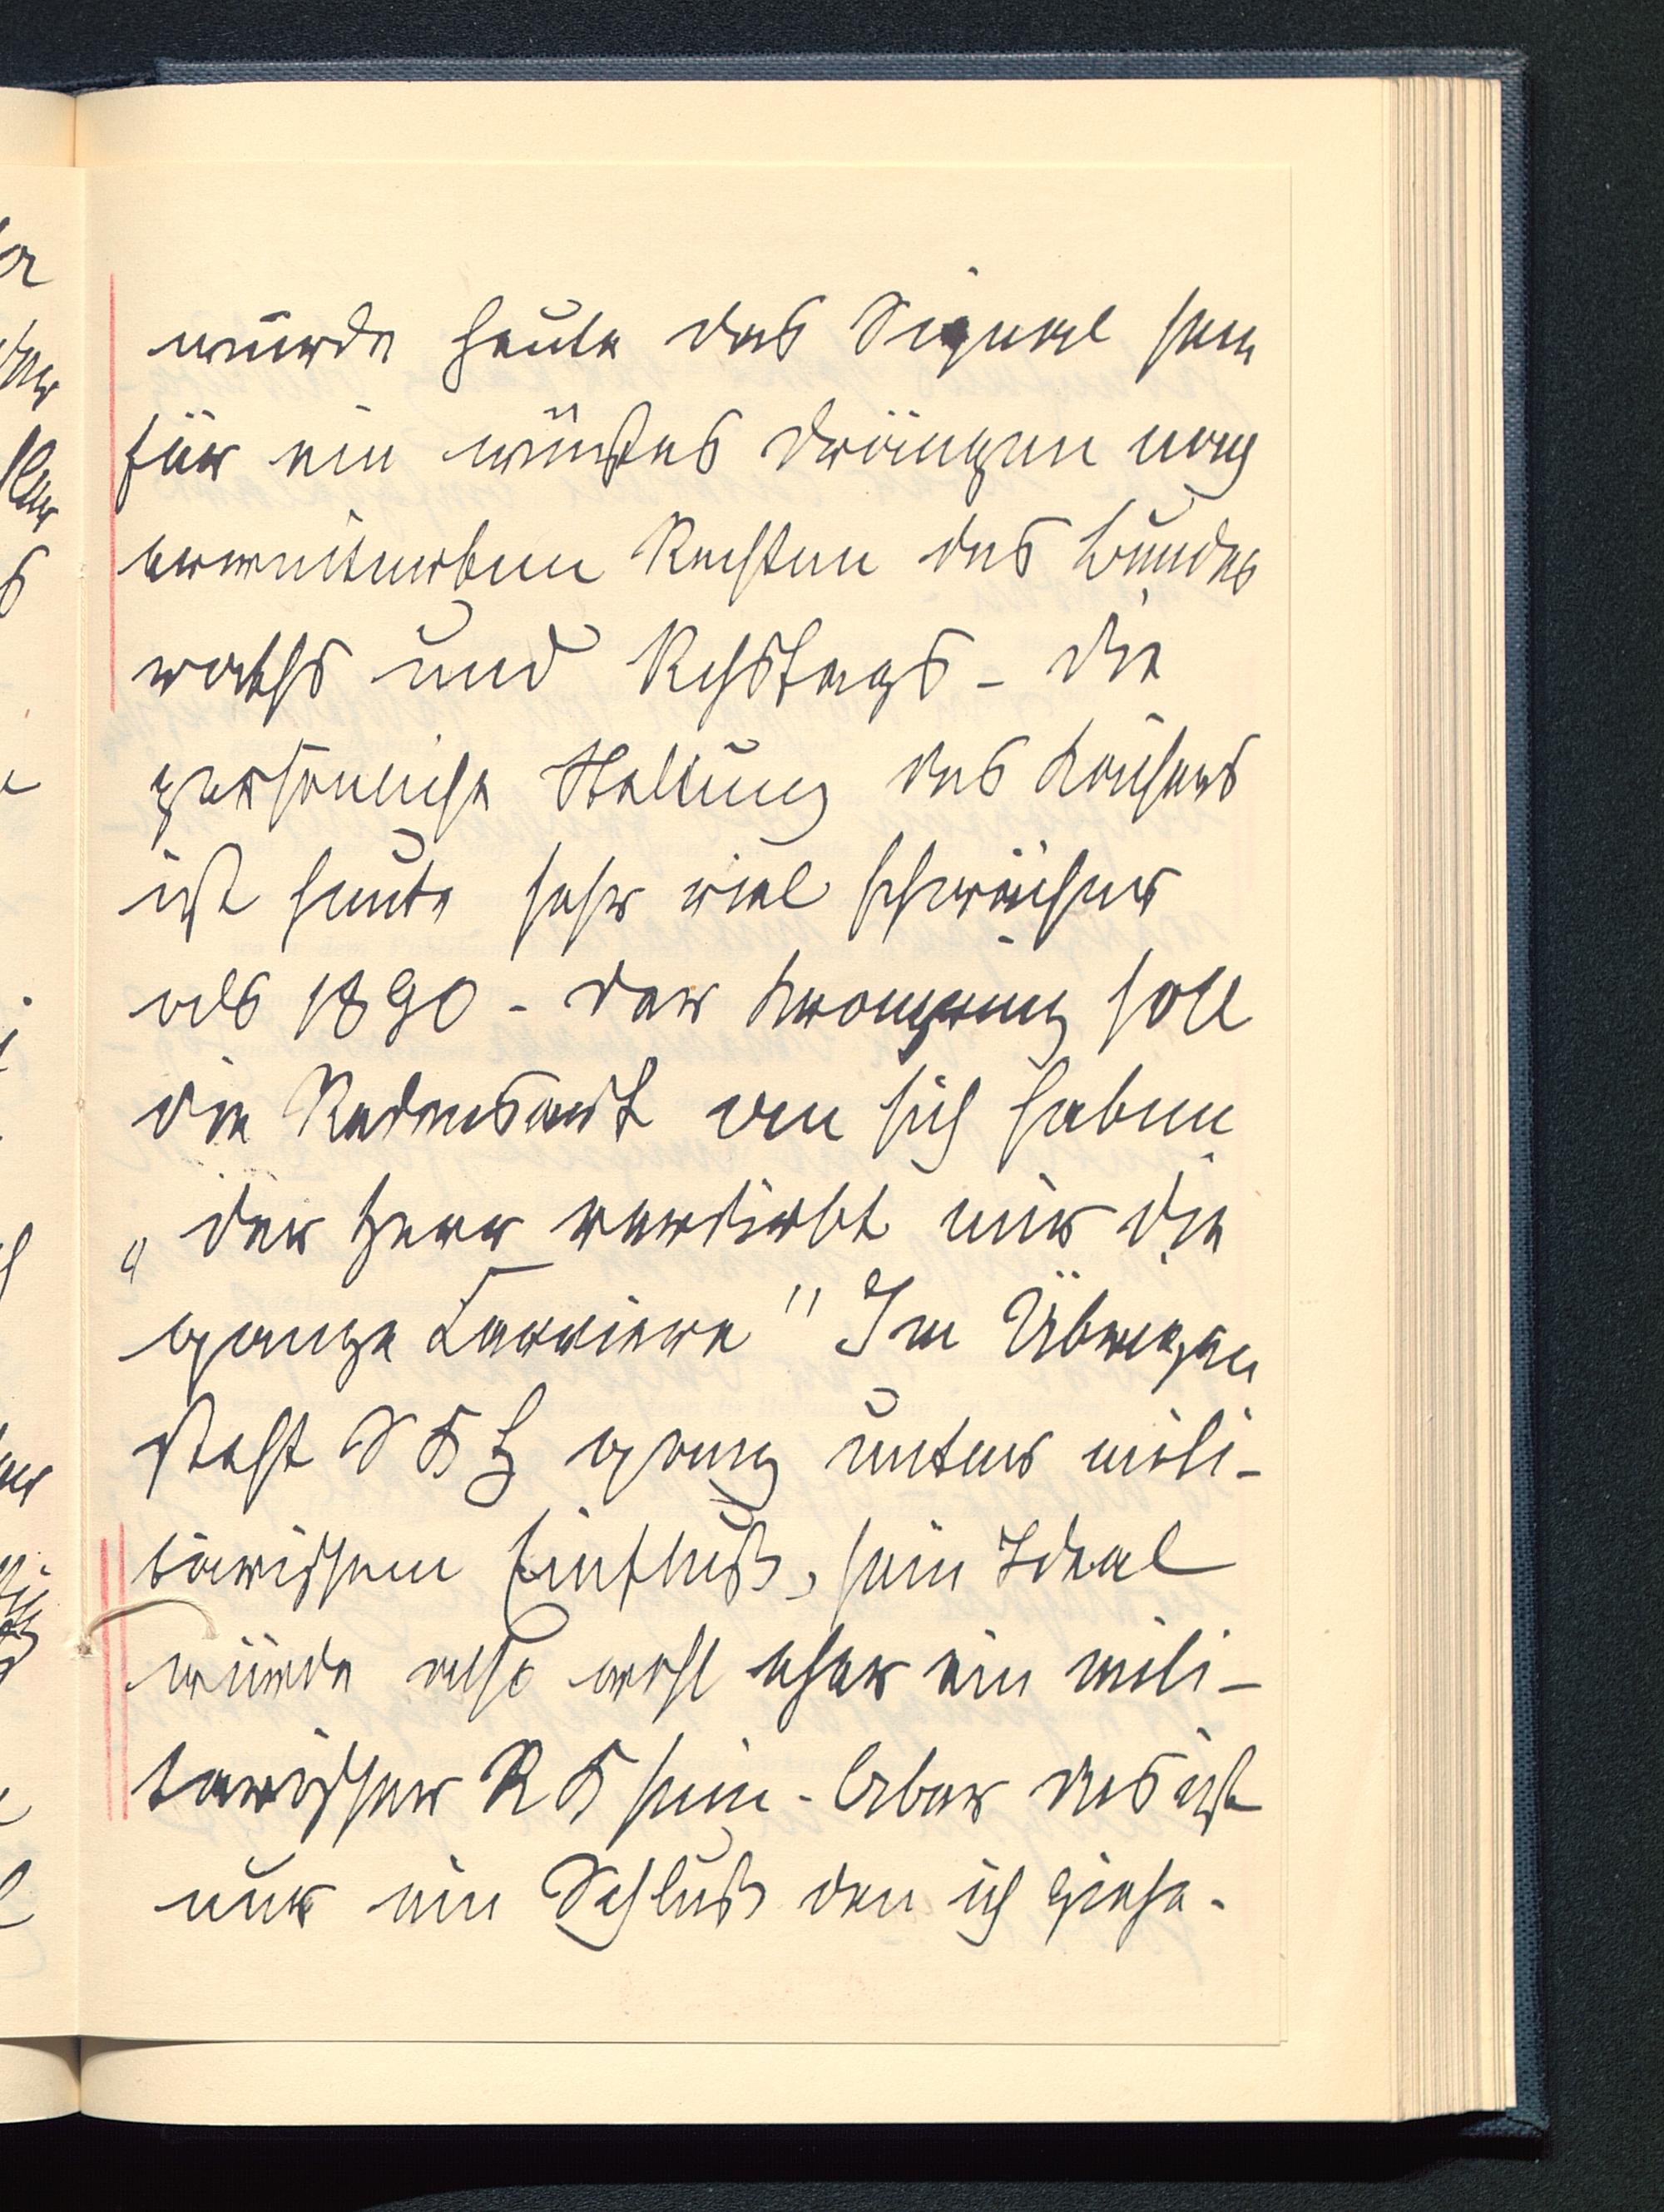 würde heute das Signal sein
für ein wüstes Drängen nach
erweiterten Rechten des Bundes
raths und Rchstags - die
persönliche Stellung des Kaisers
ist heute sehr viel schwächer
als 1890 - der Kronprinz soll
die Redensart an sich haben
„der Herr verdirbt mir die
ganze Carriere" Im Übrigen
steht S K H ganz unter mili-
tärischem Einfluß, sein Ideal
würde also wohl eher ein mili-
tärischer R K sein - Aber das ist
nur ein Schluß den ich ziehe.